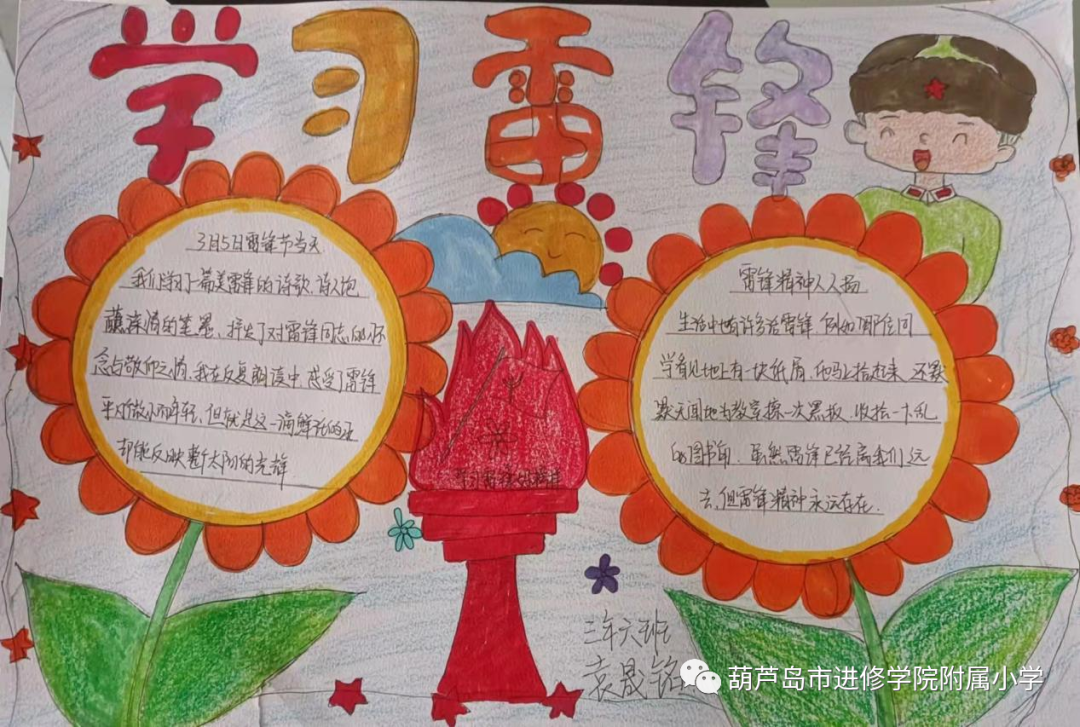 学习雷锋
3月5日雷锋节当天
我们学了一篇美雷锋的诗歌,诗人饱
蘸深情的笔墨,抒发了对雷锋同志的怀
念与敬仰之情,我在反复朗读中,感受了雷锋
但就是这一滴鲜活的
都能反映整个太阳的光辉
雷锋精神人人扬
生活中也有许多活雷锋,例如那位同
学看见地上有一块纸屑,他马上拾起来,还默
默无闻地为教室擦一次黑板,收拾一下乱
的图书角,虽然雷锋已经离我们远
去,但雷锋精神永远存在.
三年六班
袁晟铭
葫芦岛市进修学院附属小学